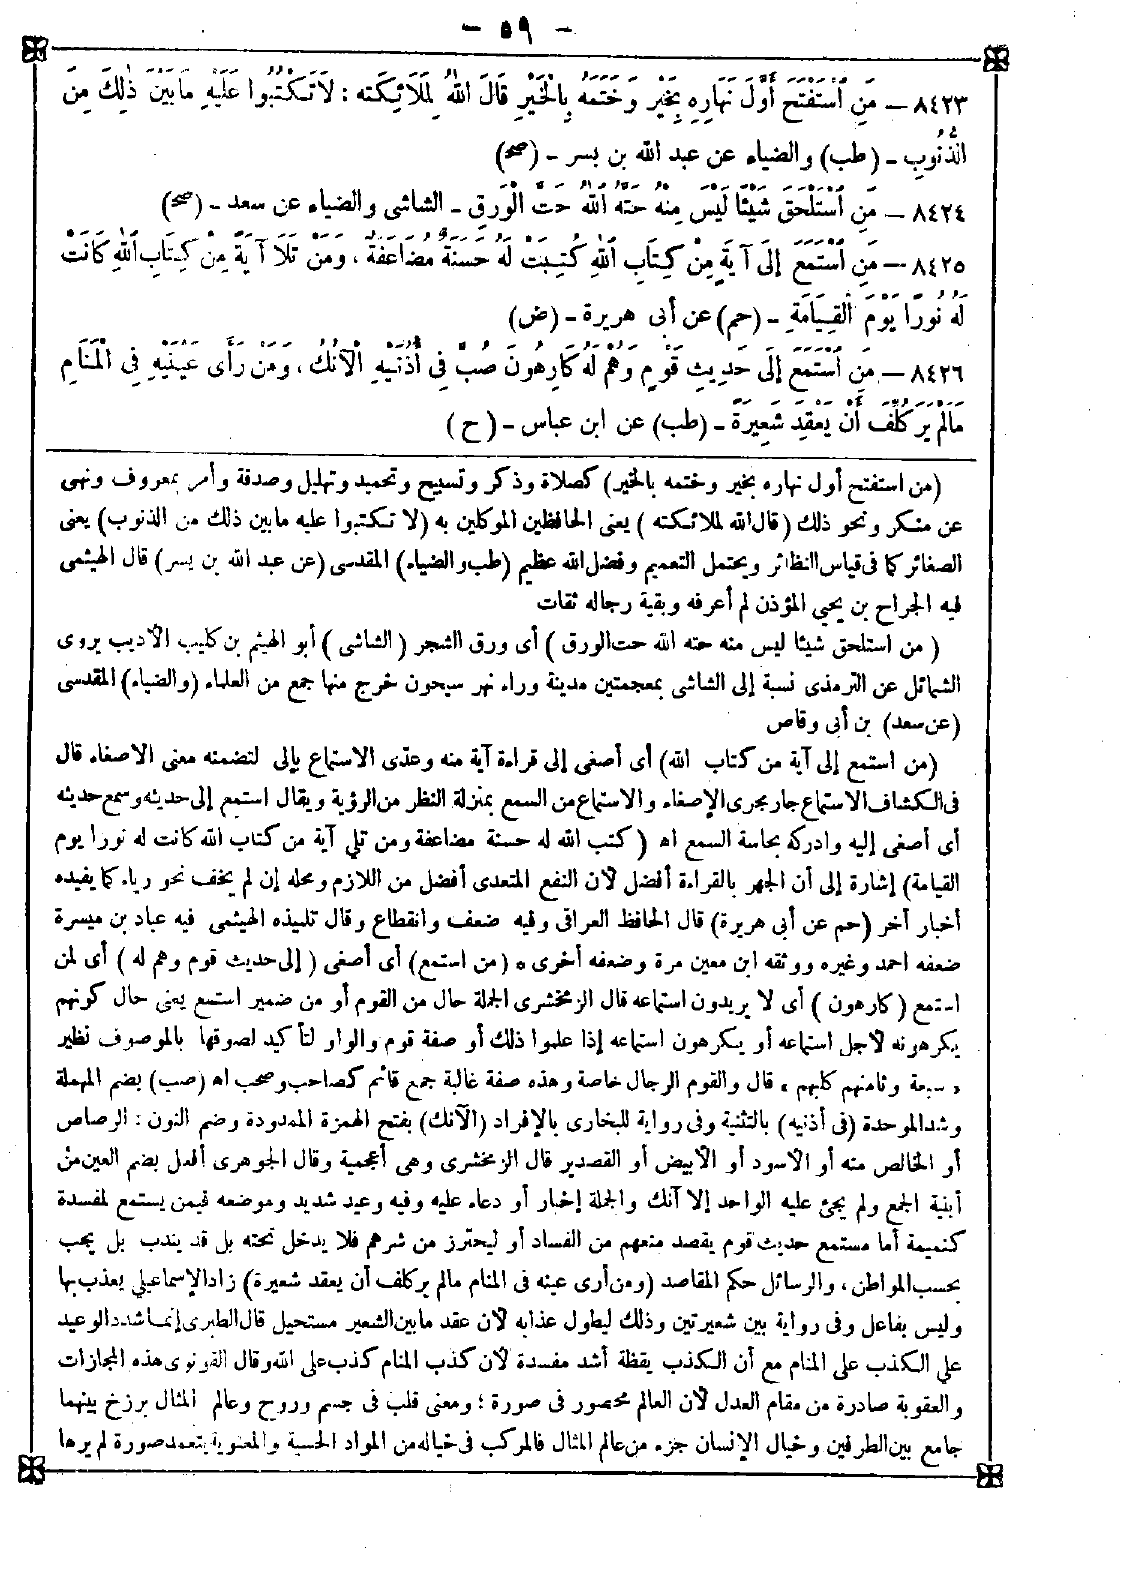 - ٥٩ -
٨٤٢٣ — مَنِ اسْتَفْتَحَ أَوَّلَ نَهَارِهِ بِخَيْرٍ وَخَتَمَهُ بِالْخَيْرِ قَالَ اللهُ لِمَلَائِكَتِهِ : لَا تَكْتُبُوا عَلَيْهِ مَا بَيْنَ ذٰلِكَ مِنَ
الذُّنُوبِ - (طب) والضياء عن عبد الله بن بسر - (صح)
٨٤٢٤ — مَنِ اسْتَلْحَقَ شَيْئًا لَيْسَ مِنْهُ حَتَّهُ اللهُ حَتَّ الْوَرَقِ - الشاشى والضياء عن سعد - (صح)
٨٤٢٥ — مَنِ اسْتَمَعَ إِلَى آيَةٍ مِنْ كِتَابِ اللهِ كُتِبَتْ لَهُ حَسَنَةٌ مُضَاعَفَةٌ ، وَمَنْ تَلَا آيَةً مِنْ كِتَابِ اللهِ كَانَتْ
لَهُ نُورًا يَوْمَ الْقِيَامَةِ - (حم) عن أبى هريرة - (ض)
٨٤٢٦ — مَنِ اسْتَمَعَ إِلَى حَدِيثِ قَوْمٍ وَهُمْ لَهُ كَارِهُونَ صُبَّ فِى أُذُنَيْهِ الْآنُكُ ، وَمَنْ رَأَى عَيْنَيْهِ فِى الْمَنَامِ
مَالَمْ يَرَ كُلِّفَ أَنْ يَعْقِدَ شَعِيرَةً - (طب) عن ابن عباس - (ح)
(من استفتح أول نهاره بخير وختمه بالخير) كصلاة وذكر وتسبيح وتحميد وتهليل وصدقة وأمر بمعروف ونهى
عن منكر ونحو ذلك (قال الله لملائكته) يعنى الحافظين الموكلين به (لا تكتبوا عليه ما بين ذلك من الذنوب) يعنى
الصغائر كما فى قياس النظائر ويحتمل التعميم وفضل الله عظيم (طب والضياء) المقدسى (عن عبد الله بن يسر) قال الهيثمى
فيه الجراح بن يحيى المؤذن لم أعرفه وبقية رجاله ثقات
(من استلحق شيئا ليس منه حته الله حت الورق) أى ورق الشجر (الشاشى) أبو الهيثم بن كليب الأديب يروى
الشمائل عن الترمذى نسبة إلى الشاشى بمعجمتين مدينة وراء نهر سيحون خرج منها جمع من العلماء (والضياء) المقدسى
(عن سعد) بن أبى وقاص
(من استمع إلى آية من كتاب الله) أى أصغى إلى قراءة آية منه وعدى الاستماع بإلى لتضمنه معنى الاصغاء قال
فى الكشاف الاستماع جار مجرى الإصغاء والاستماع من السمع بمنزلة النظر من الرؤية ويقال استمع إلى حديثه وسمع حديثه
أى أصغى إليه وادركه بحاسة السمع اه (كتب الله له حسنة مضاعفة ومن تلى آية من كتاب الله كانت له نورا يوم
القيامة) إشارة إلى أن الجهر بالقراءة أفضل لأن النفع المتعدى أفضل من اللازم ومحله إن لم يخف نحو رياء كما يفيده
أخبار أخر (حم عن أبى هريرة) قال الحافظ العراقى وفيه ضعف وانقطاع وقال تلميذه الهيثمى فيه عباد بن ميسرة
ضعفه احمد وغيره ووثقه ابن معين مرة وضعفه أخرى ٥ (من استمع) أى أصغى (إلى حديث قوم وهم له) أى لمن
استمع (كارهون) أى لا يريدون استماعه قال الزمخشرى الجملة حال من القوم أو من ضمير استمع يعنى حال كونهم
يكرهونه لأجل استماعه أو يكرهون استماعه إذا علموا ذلك أو صفة قوم والواو لتأكيد لصوقها بالموصوف نظير
« سبعة وثامنهم كلبهم » قال والقوم الرجال خاصة وهذه صفة غالبة جمع قائم كصاحب وصحب اه (صب) بضم المهملة
وشد الموحدة (فى أذنيه) بالتثنية وفى رواية للبخارى بالإفراد (الآنك) بفتح الهمزة الممدودة وضم النون : الرصاص
أو الخالص منه أو الأسود أو الأبيض أو القصدير قال الزمخشرى وهى أعجمية وقال الجوهرى أفعل بضم العين من
أبنية الجمع ولم يجئ عليه الواحد إلا آنك والجملة إخبار أو دعاء عليه وفيه وعيد شديد وموضعه فيمن يستمع لمفسدة
كنميمة أما مستمع حديث قوم يقصد منعهم من الفساد أو ليحترز من شرهم فلا يدخل تحته بل قد يندب بل يجب
بحسب المواطن ، والرسائل حكم المقاصد (ومن أرى عينه فى المنام مالم ير كلف أن يعقد شعيرة) زاد الإسماعيلى يعذب بها
وليس بفاعل وفى رواية بين شعيرتين وذلك ليطول عذابه لأن عقد ما بين الشعير مستحيل قال الطبرى إنما شدد الوعيد
على الكذب على المنام مع أن الكذب يقظة أشد مفسدة لأن كذب المنام كذب على الله وقال القونوى هذه المجازات
والعقوبة صادرة من مقام العدل لأن العالم محصور فى صورة ؛ ومعنى قلب فى جسم وروح وعالم المثال برزخ بينهما
جامع بين الطرفين وخيال الإنسان جزء من عالم المثال فالمركب فى خياله من المواد الحسية والمعنوية بتعمد صورة لم يرها